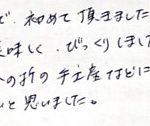 で、初めて頂きました
美味しく、びっくりしまし
の折の手土産などに
いと思いました。